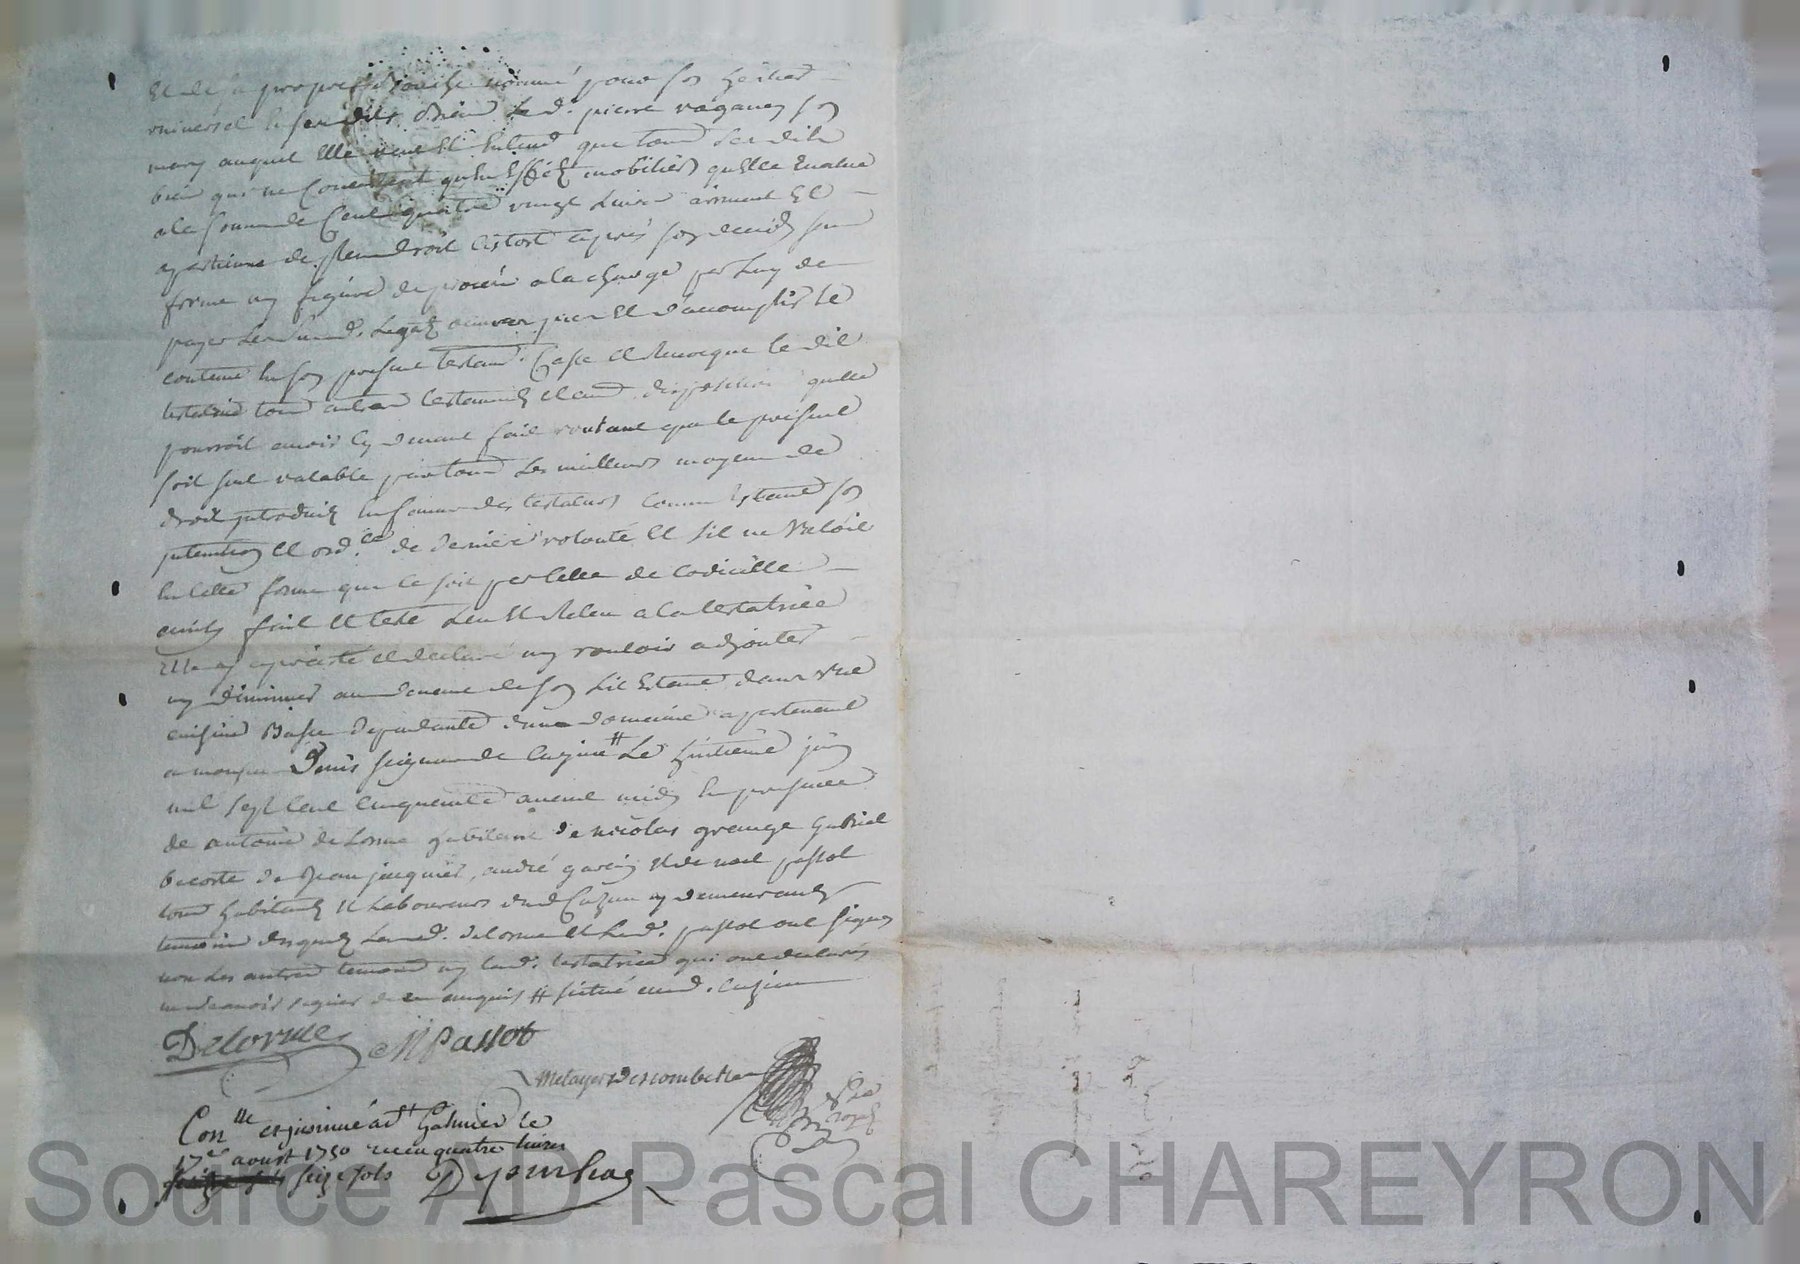 Et de sa propre bouche nommé pour son heritier
universel en ses dits biens led. pierre vaganay son
mary auquel elle veut et entend que tous ses dits
biens qui ne consistent qu'en effets mobiliers qu'elle evalue
a la somme de cent quatre vingt livres arrivent et
apartiene de plein droit aprés son decés sans
forme ny figure de procés a la charge par luy de
payer les susd. legats et d'accomplir le
contenu en son present testamt. Casse et revoque la dite
testatrice tous autres testaments et autres dispositions qu'elle
pourroit avoir cy devant fait voulant que le present
soit seul valable par tous les meilleurs moyens de
droit introduits en faveur des testateurs comme estant son
intention et ord.ce de derniere volonté et s'il ne valoit
en cette forme que ce soit par celle de codicille
ainsy fait et testé leu et releu a la testatrice
elle y a persisté et declaré ny vouloir adjouter
ny diminuer au devant de son lit estant dans une
cuisine basse dependante d'un domaine appartenant
a monsieur Denis seigneur de Cuzieu # Le huitieme juin
mil sept cent cinquante avant midy en presence
de antoine delorme habitant de nicolas grange gabriel
becoste de Jean jacquier, andré garin et de noel passot
tous habitants et laboureurs dud Cuzieu y demeurants
temoins desquels led. delorme et led. passot ont signés
non les autres temoins ny lad. testatrice qui ont declarés
ne sçavoir signer de ce enquis # situé aud. Cuzieu
Delorme N Passot
Metayer Descombes
Con.lle et insinué a St Galmier le
17e aoust 1750 receu quatre livres
seize sols
Source AD Pascal CHAREYRON